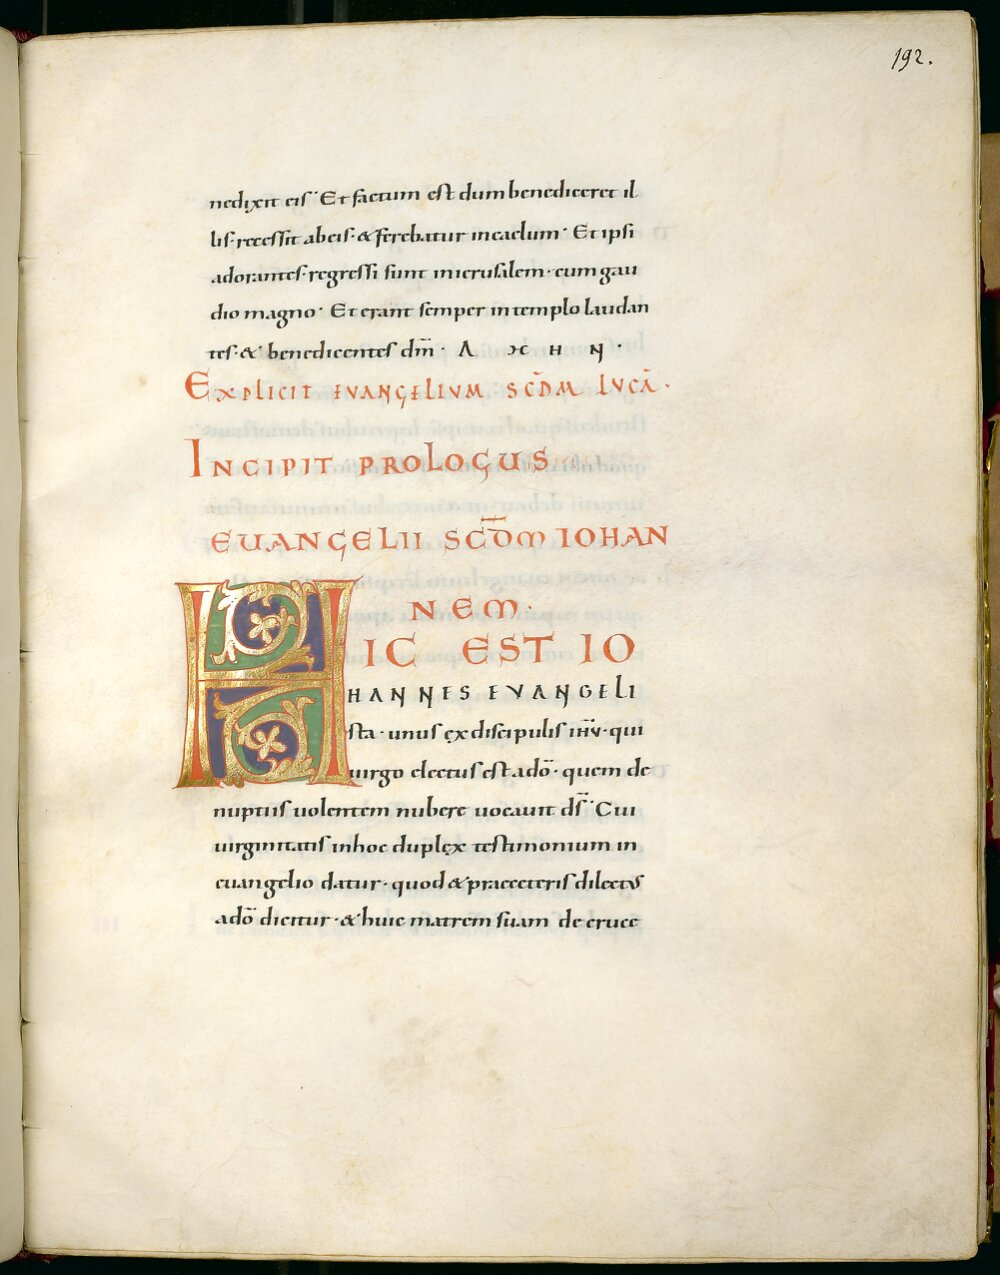 192.
nedixit eis· Et factum est dum benediceret il
lis· recessit ab eis· & ferebatur in caelum· Et ipsi
adorantes· regressi sunt in ierusalem· cum gau
dio magno· Et erant semper in templo laudan
tes· &̇ benedicentes dm̄· Λ ϰ H N·
EXPLICIT EVANGELIVM SC̄DM LVCĀ·
INCIPIT PROLOGUS
EUANGELII SC̄D̄M IOHAN
NEM·
HIC EST IO
HANNES EVANGELI
sta· unus ex discipulis ihū· qui
uirgo electus est a dō· quem de
nuptiis uolentem nubere uocauit ds̄· Cui
uirginitatis in hoc duplex testimonium in
euangelio datur· quod & prae ceteris dilectus
a dō dicitur· & huic matrem suam de cruce